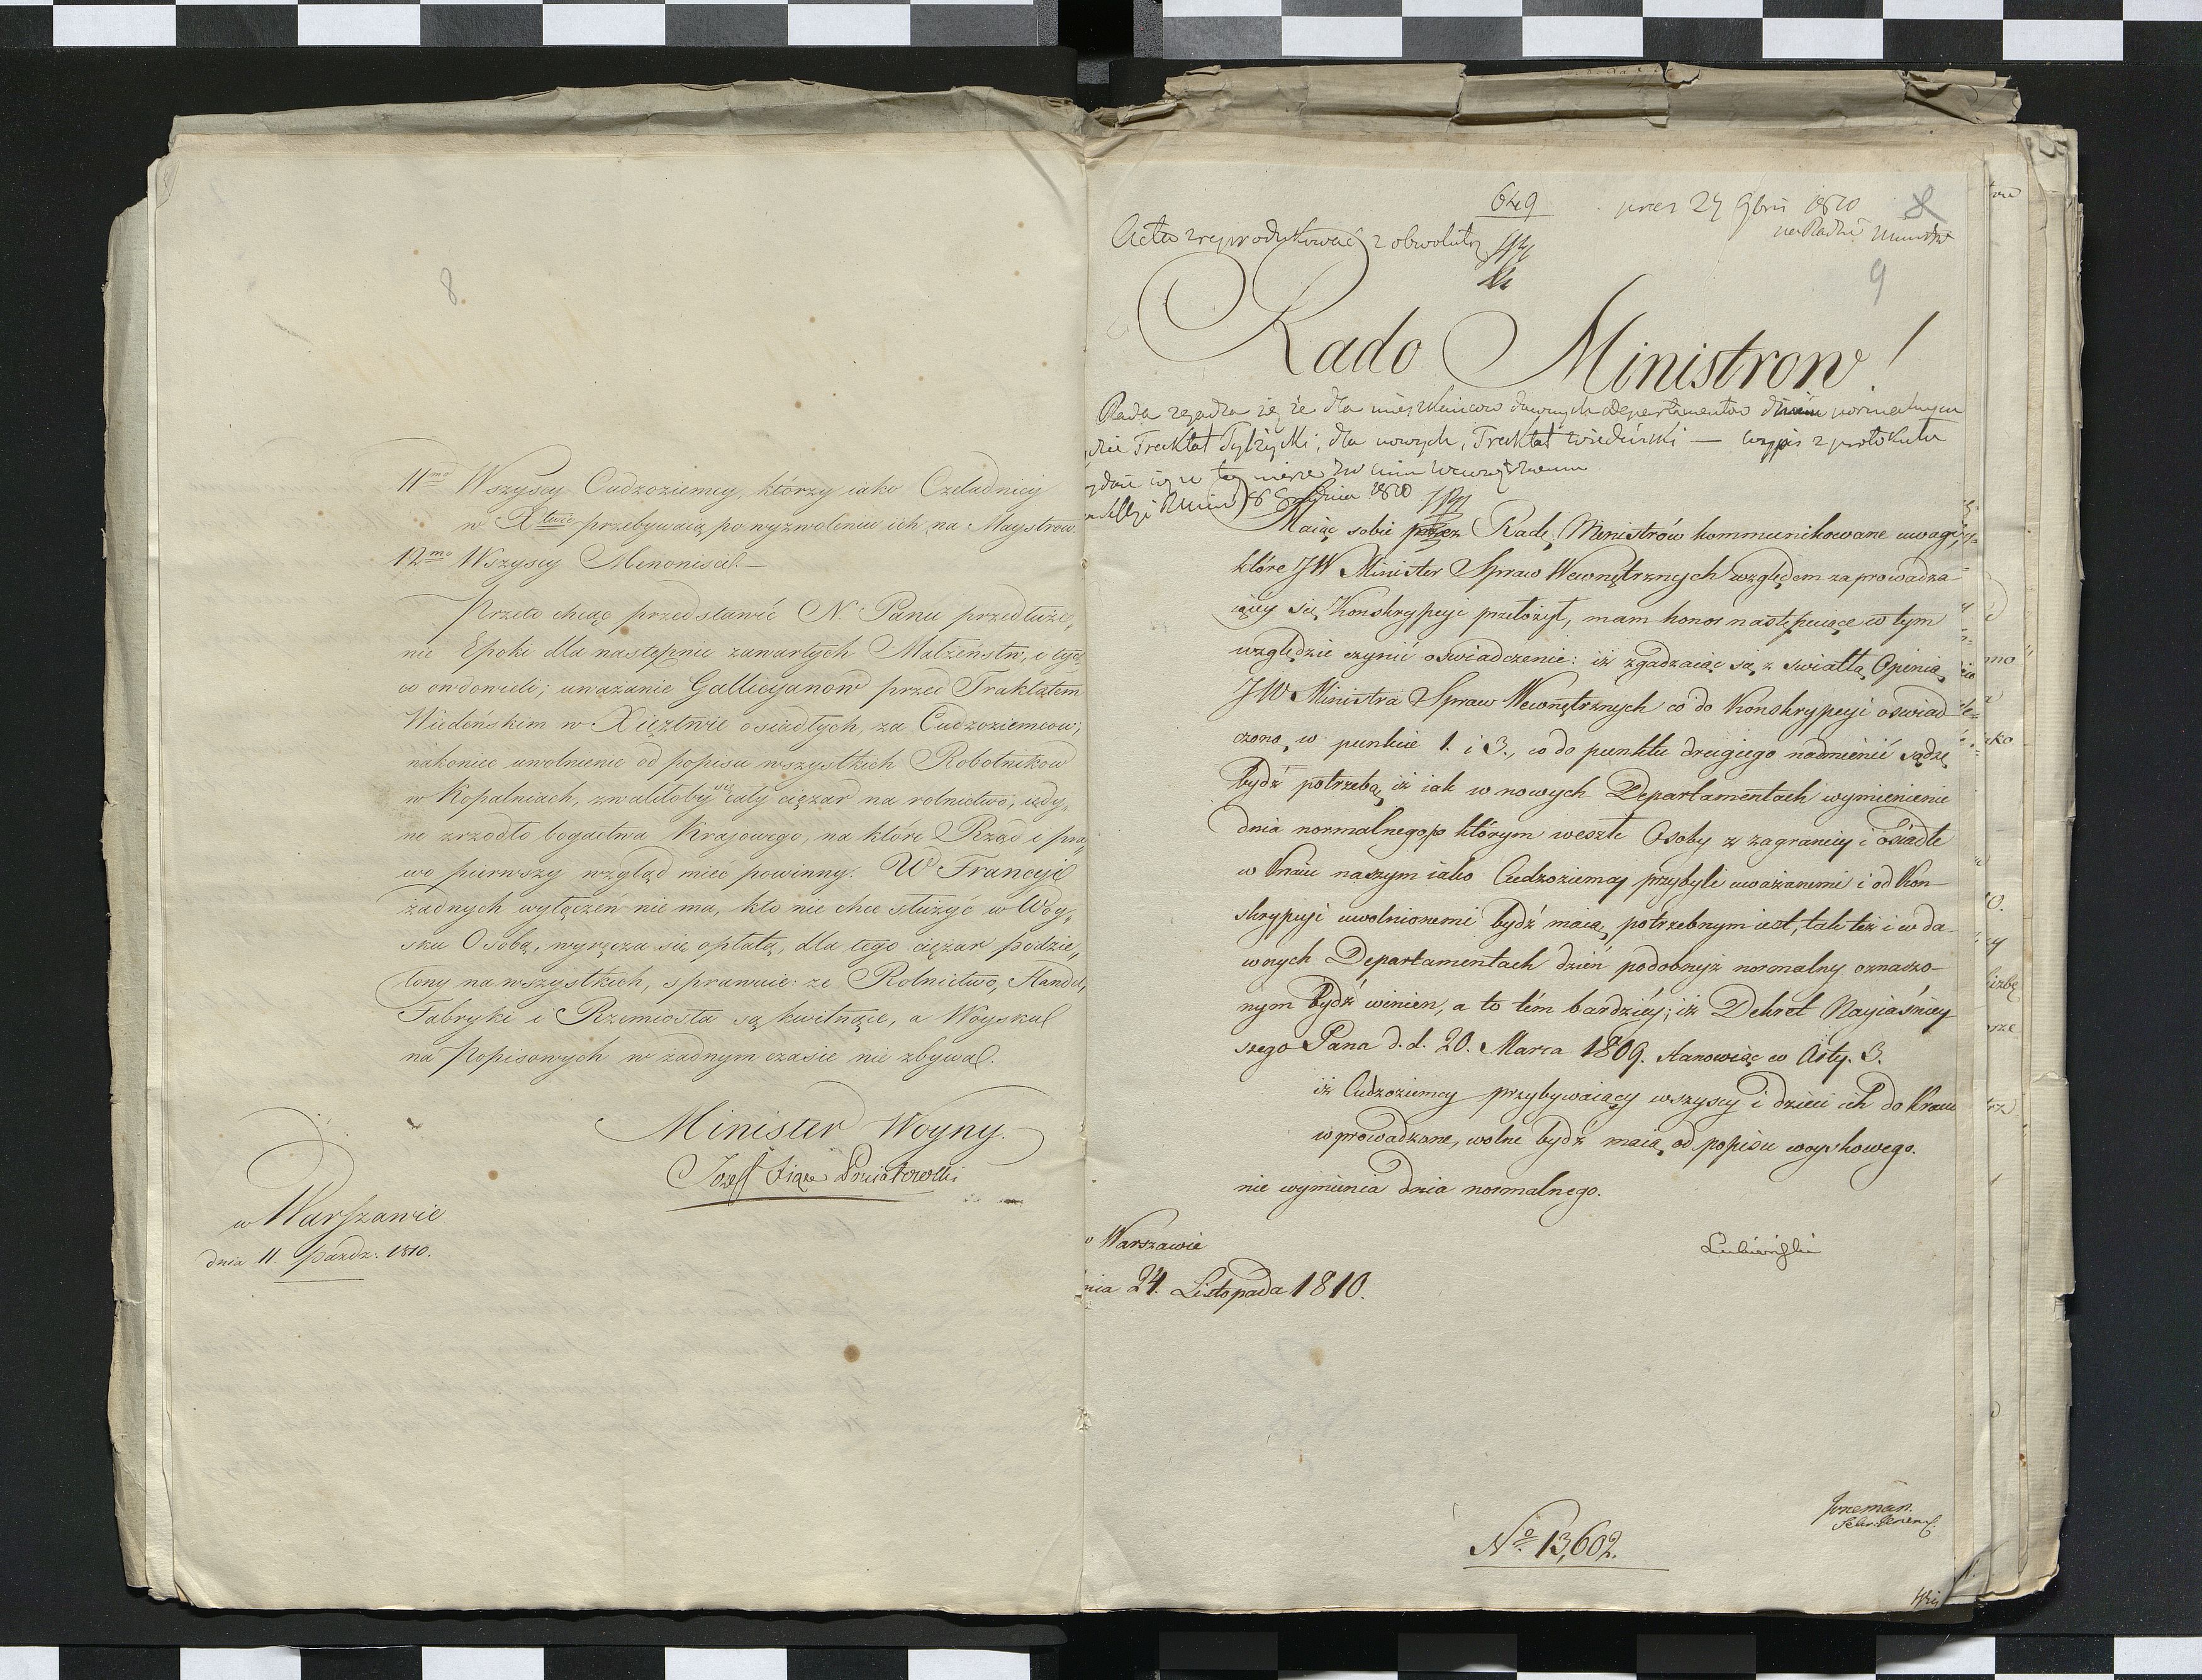 8
11mo Wszyscy Cudzoziemcy, którzy iako Czeladnicy
w Xtwie przebywaią, po wyzwoleniu ich na Maystrow.
12mo Wszyscy Menonisci.—
Przeto chcąc przedstawić N. Panu przedłuże„
nie Epoki dla następnie zawartych Małżeństw, i tych
co owdowieli; uważanie Gallicyanow przed Traktatem
Wiedeńskim w Xięztwie osiadłych, za Cudzoziemcow;
nakoniec uwolnienie od popisu wszystkich Robotnikow
w Kopalniach, zwaliłoby cały ciężar na rolnictwo, iedy„
ne zrzodło bogactwa Kraiowego, na które Rząd i pra„
wo pierwszy wzgląd mieć powinny. W Francyi
żadnych wyłączeń nie ma, kto nie chce służyć w Woy„
sku Osobą, wyręcza się opłatą, dla tego ciężar podzie„
lony na wszystkich, sprawuie: że Rolnictwo, Handel,
Fabryki i Rzemiosła są kwitnące, a Woysku
na Popisowych w żadnym czasie nie zbywa.
Minister Woyny.
Jozef Xiąże Poniatowski
w Warszawie
dnia 11 Paźdz: 1810.
649
prez 27 9bris 1810
na Radzie Ministr
8
Acta reprodukować z obwolutą
9
Rado Ministrow!
Rada zgadza się że dla mieszkańcow dawnych departamentow dniem normalnym
Traktat Tylżycki, dla nowych, Traktat wiedeński — wypis z protokułu
Grudnia 1810
Maiąc sobie przez Radę Ministrów kommunikowane uwagi,
które JW Minister Spraw Wewnętrznych względem zaprowadza
iącey się Konskrypcyi przełożył, mam honor następuiące w tym
względzie czynić oswiadczenie: iż zgadzaiąc się z swiatłą Opinią
JW Ministra Spraw Wewnętrznych co do Konskrypcyi oswiad
czoną w punkcie 1. i 3., co do punktu drugiego nadmienić sądzę
bydź potrzebą, iż iak w nowych Departamentach wymienienie
dnia normalnego, po którym weszłe Osoby z zagranicy i osiadłe
w Kraiu naszym iako Cudzoziemcy przybyli uważanemi i od Kon-
skrypcyi uwolnionemi bydź maią, potrzebnym iest, tak też i w da-
wnych Departamentach dzień podobnyż normalny oznaczo-
nym bydź winien, a to tém bardziéy, iż Dekret Nayiaśniey
szego Pana d. d. 20. Marca 1809. stanowiąc w Arty. 3.
iż Cudzoziemcy przybywaiący wszyscy i dzieci ich do Kraiu
wprowadzone, wolne bydź maią od popisu woyskowego.
nie wymienia dnia normalnego.
Warszawie
nia 24. Listopada 1810.
Łubieński
No. 13,602.